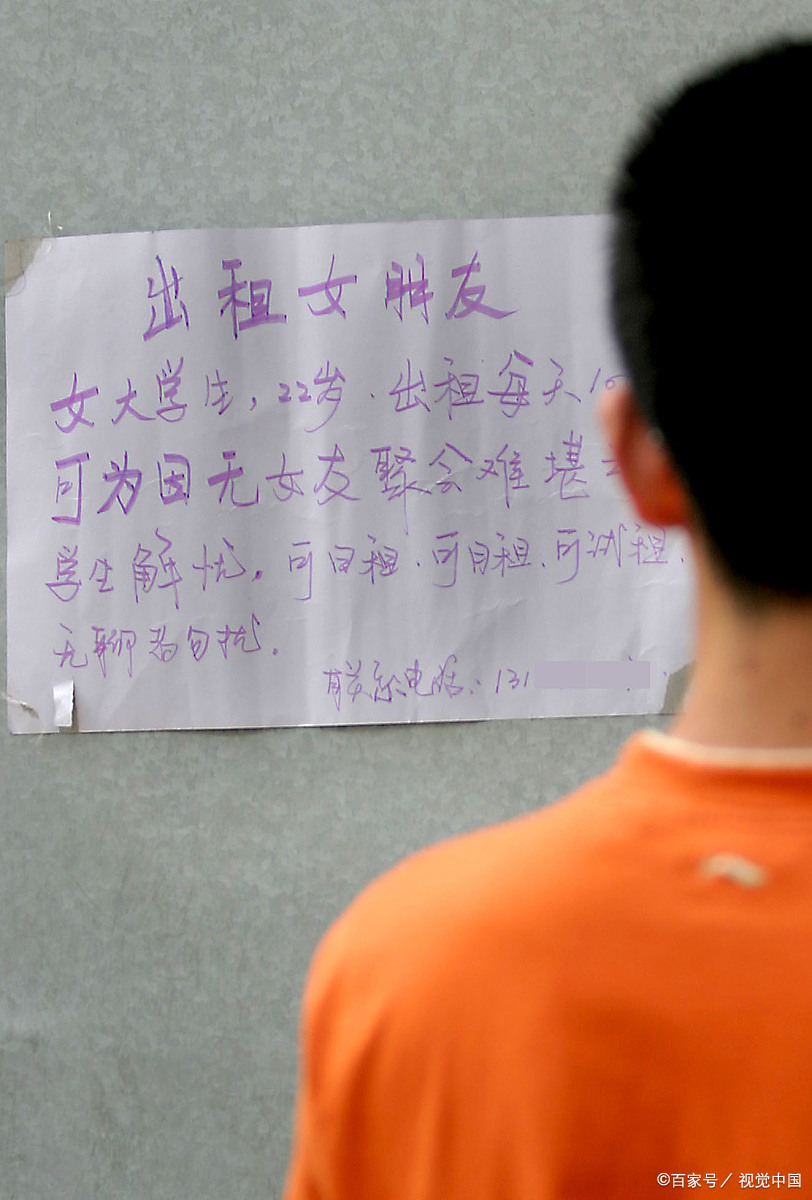 出租女朋友
女大学生,22岁.出租每天1
可为因无女友聚会难堪
学生解忧。可日租.可月租.可试租.
无聊者勿扰.
联系电话:131
©百家号/视觉中国